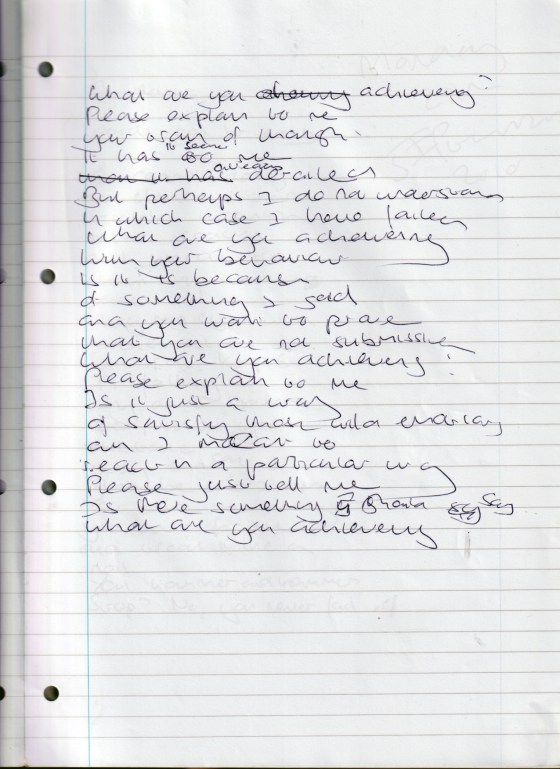 What are you achieving?
Please explain to me
your train of thought.
It has it seems to me
already derailed
But perhaps I do not understand
In which case I have failed
What are you achieving
With your behaviour
Is it is because
of something I said
and you want to prove
that you are not submissive
What are you achieving?
Please explain to me
Is it just a way
of satisfying those wild
am I meant to
react in a particular way
Please just tell me
Is there something I should say
What are you achieving